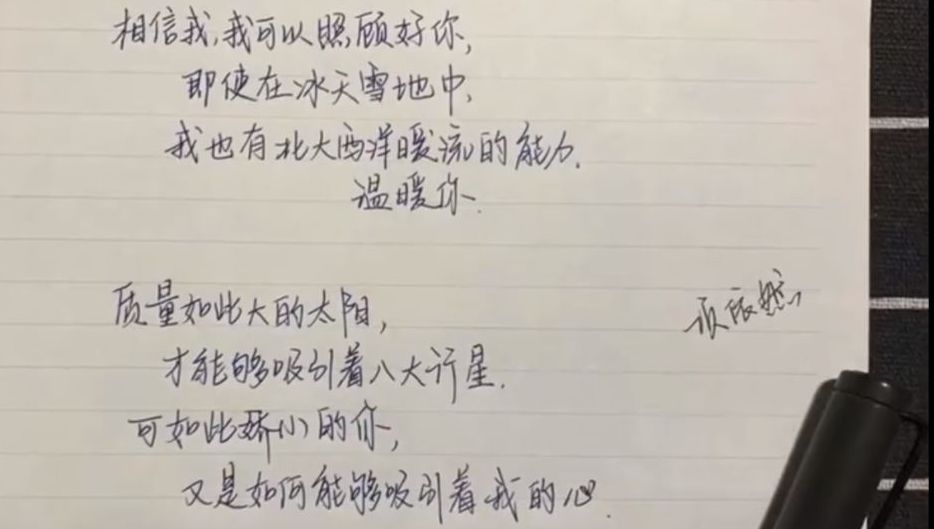 相信我,我可以照顾好你,
即使在冰天雪地中,
我也有北大西洋暖流的能力.
温暖你.
质量如此大的太阳,
才能够吸引着八大行星.
可如此娇小的你,
又是如何能够吸引着我的心.